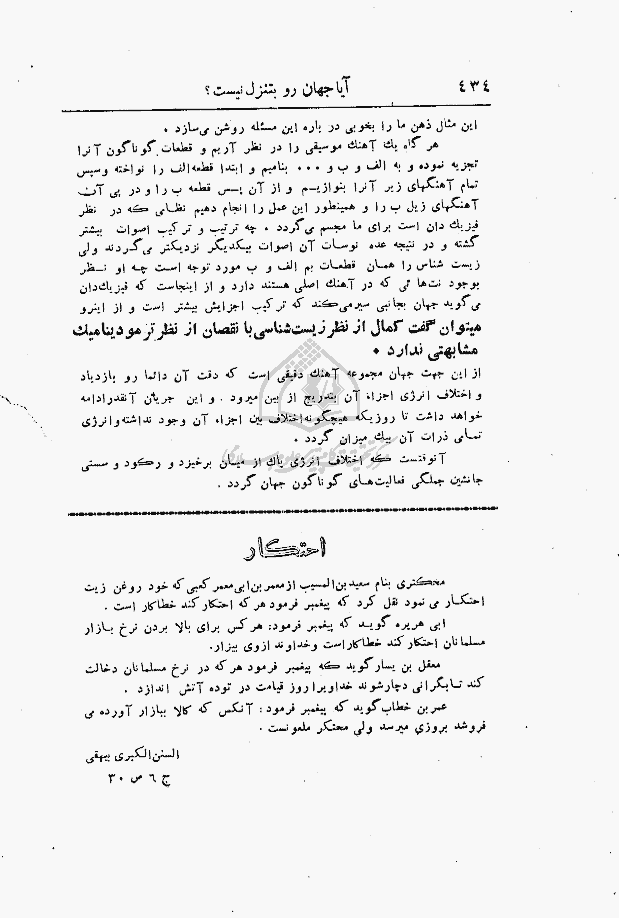 ٤٣٤
آیا جهان رو بتنزل نیست ؟
این مثال ذهن ما را بخوبی در باره این مسئله روشن می‌سازد .
هر گاه یك آهنك موسیقی را در نظر آریم و قطعات گوناگون آنرا
تجزیه نموده و به الف و ب و ۰۰۰ بنامیم و ابتدا قطعه الف را نواخته وسپس
تمام آهنگهای زیر آنرا بنوازیم و از آن پس قطعه ب را و در پی آن
آهنگهای زیل ب را و همینطور این عمل را انجام دهیم نظامی که در نظر
فیزیك دان است برای ما مجسم می‌گردد . چه ترتیب و ترکیب اصوات بیشتر
گشته و در نتیجه عده نوسات آن اصوات بیکدیگر نزدیکتر می‌گردند ولی
زیست شناس را همان قطعات بم الف و ب مورد توجه است چه او نظر
بوجود نت‌ها ئی که در آهنك اصلی هستند دارد و از اینجاست که فیزیك‌دان
می‌گوید جهان بجانبی سیر می‌کند که ترکیب اجزایش بیشتر است و از اینرو
میتوان گفت کمال از نظر زیست‌شناسی با نقصان از نظر ترمودینامیك
مشابهتی ندارد .
از این جهت جهان مجموعه آهنك دقیقی است که دقت آن دائما رو بازدیاد
و اختلاف انرژی اجزاء آن بتدریج از بین میرود . و این جریان آنقدر ادامه
خواهد داشت تا روزیکه هیچگونه اختلاف بین اجزاء آن وجود نداشته و انرژی
تمامی ذرات آن بیك میزان گردد .
آنوقتست که اختلاف انرژی پاك از میان برخیزد و رکود و سستی
جانشین جملگی فعالیت‌های گوناگون جهان گردد .
احتکار
محتکری بنام سعید بن المسیب از معمر بن ابی معمر کعبی که خود روغن زیت
احتکار می نمود نقل کرد که پیغمبر فرمود هر که احتکار کند خطاکار است .
ابی هریره گوید که پیغمبر فرمود: هر کس برای بالا بردن نرخ بازار
مسلمانان احتکار کند خطاکار است و خداوند ازوی بیزار.
معقل بن یسار گوید که پیغمبر فرمود هر که در نرخ مسلمانان دخالت
کند تا بگرانی دچار شوند خداویرا روز قیامت در توده آتش اندازد .
عمر بن خطاب گوید که پیغمبر فرمود : آنکس که کالا ببازار آورده می
فروشد بروزی میرسد ولی محتکر ملعونست .
السنن الکبری بیهقی
ج ٦ ص ۳۰